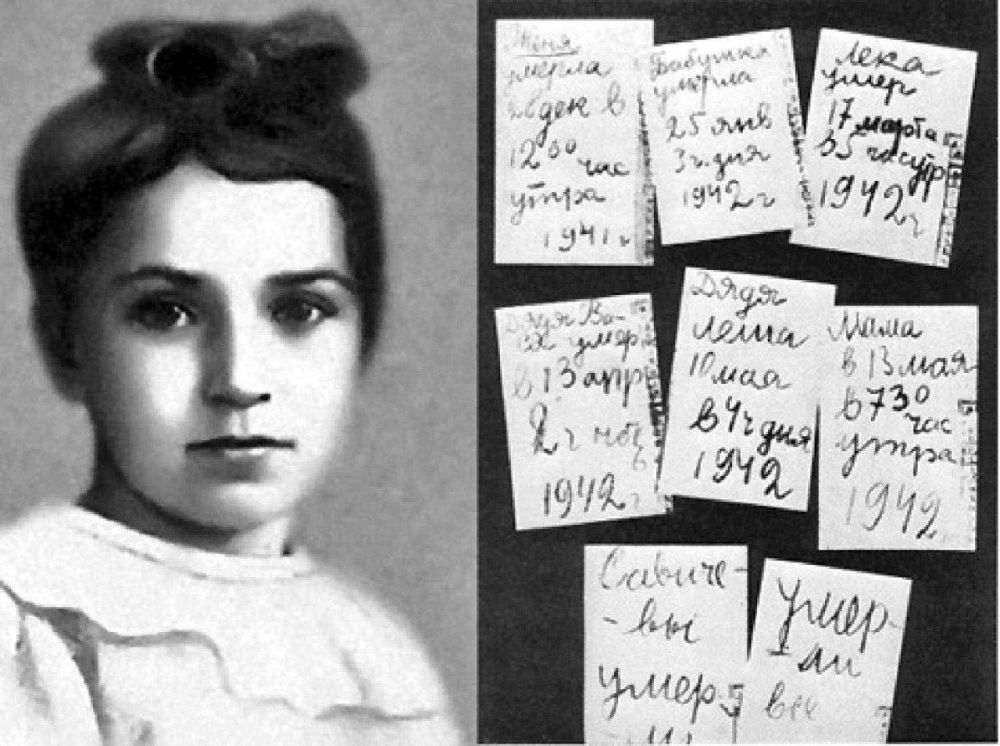 Женя
умерла
28 дек в
12 00 час
утра
1941 г
Бабушка
умерла
25 янв
3 ч. дня
1942 г
Лека
умер
17 марта
в 5 час утр
1942 г
Дядя Ва-
ся умер
в 13 апр
2 ч ноч
1942 г
Дядя
Леша
10 мая
в 4 ч дня
1942
Мама
в 13 мая
в 7 30
час
утра
1942
Савиче-
-вы
умер
ли
Умер-
-ли
все